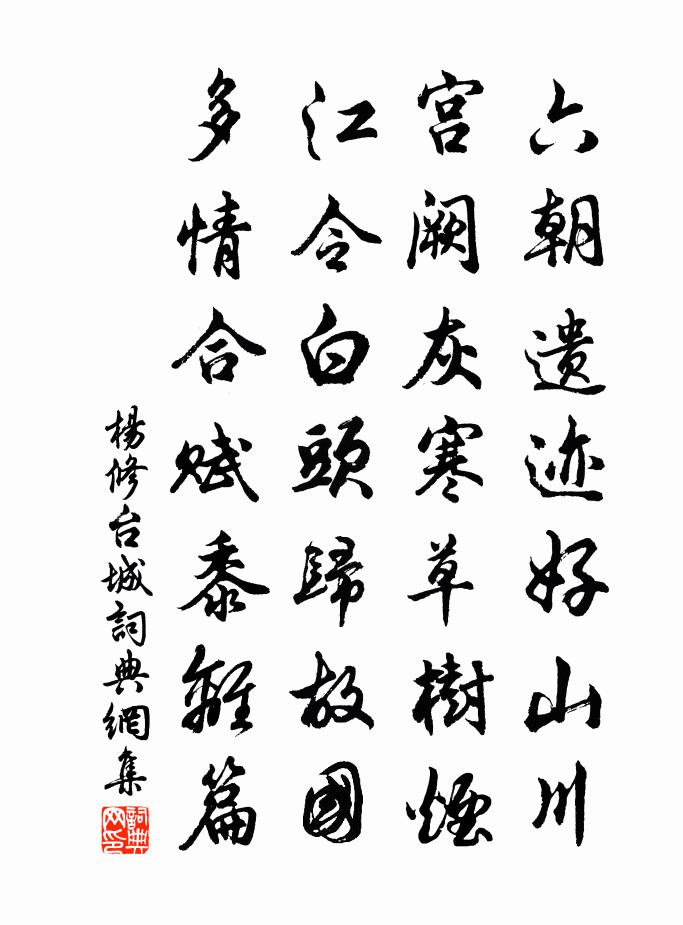 六朝遗迹好山川
宫阙灰寒草樹煙
江令白頭歸故國
多情合赋黍離篇
楊修台城詞典網集
詞典网印